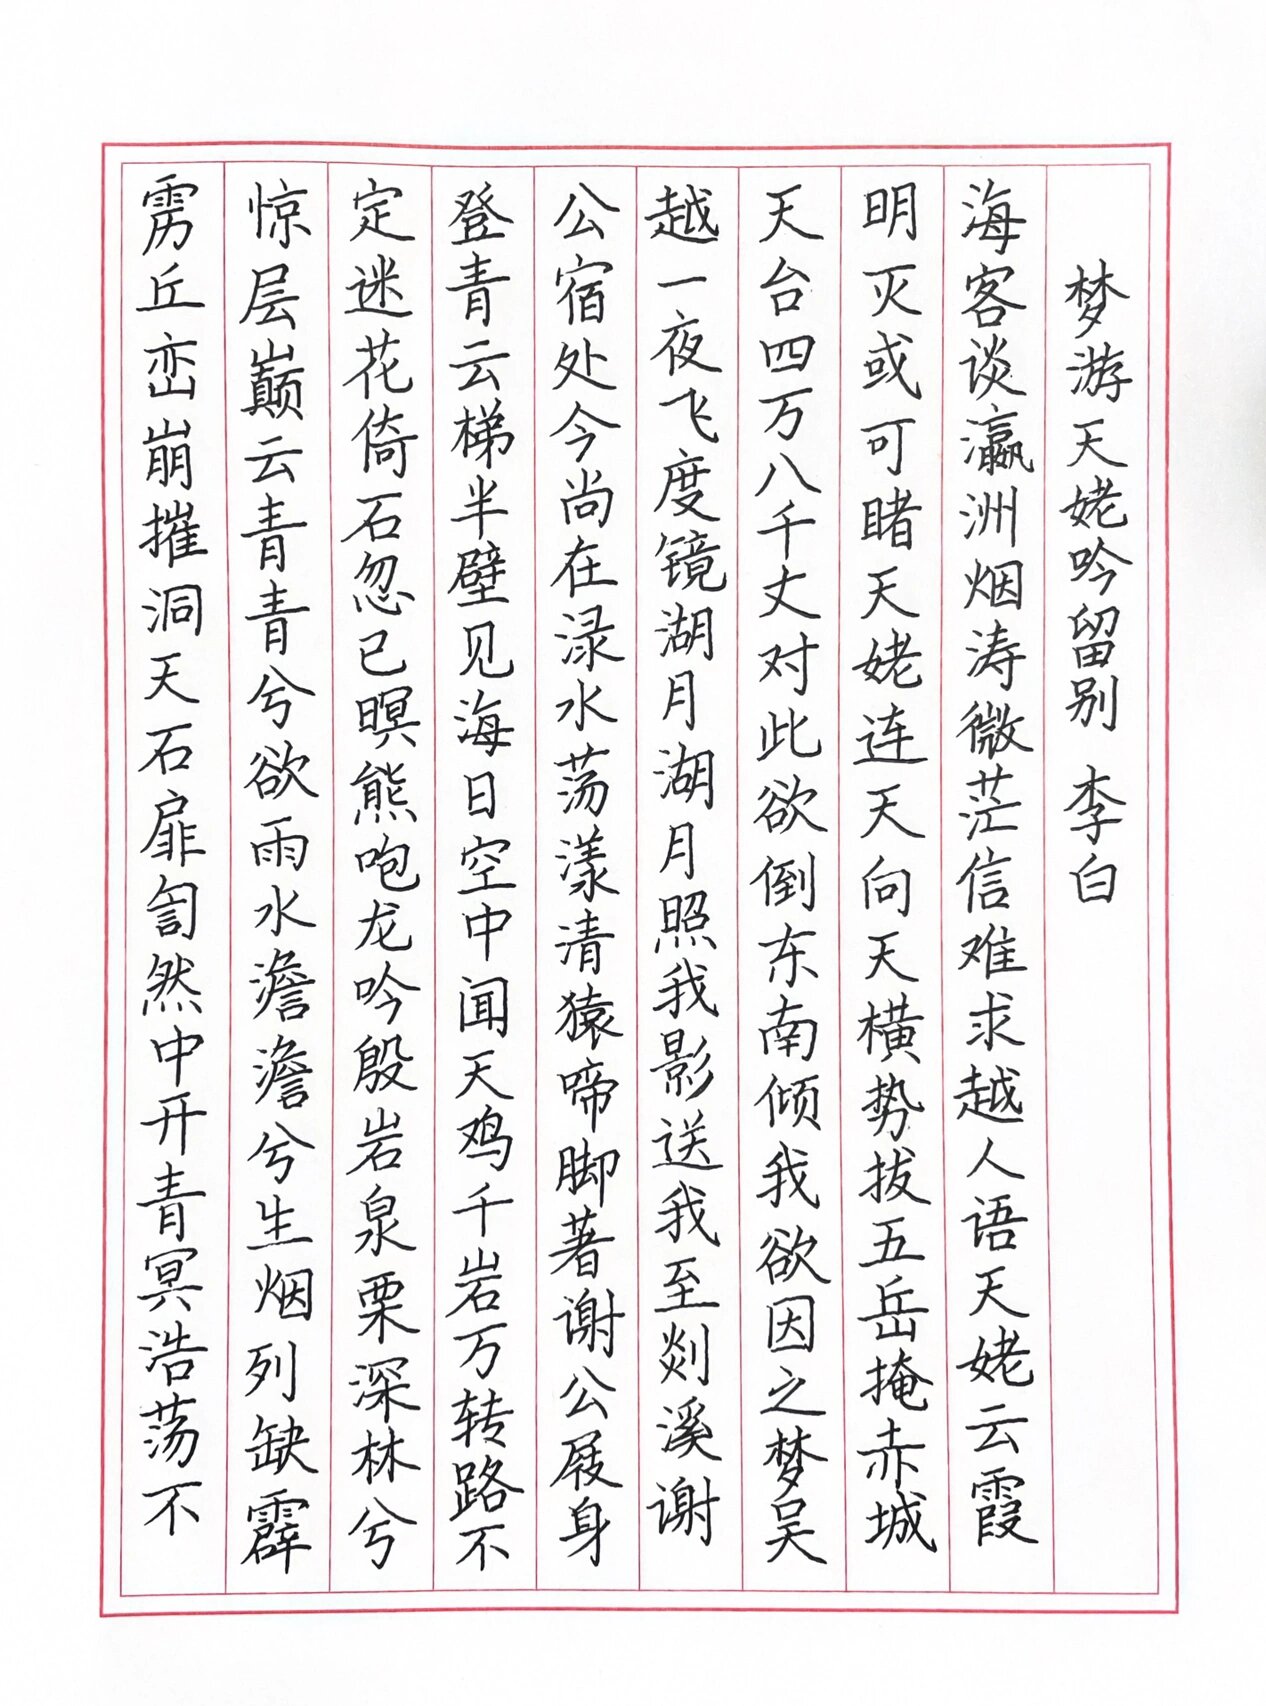 梦游天姥吟留别 李白
海客谈瀛洲烟涛微茫信难求越人语天姥云霞
明灭或可睹天姥连天向天横势拔五岳掩赤城
天台四万八千丈对此欲倒东南倾我欲因之梦吴
越一夜飞度镜湖月湖月照我影送我至剡溪谢
公宿处今尚在渌水荡漾清猿啼脚著谢公屐身
登青云梯半壁见海日空中闻天鸡千岩万转路不
定迷花倚石忽已暝熊咆龙吟殷岩泉栗深林兮
惊层巅云青青兮欲雨水澹澹兮生烟列缺霹
雳丘峦崩摧洞天石扉訇然中开青冥浩荡不